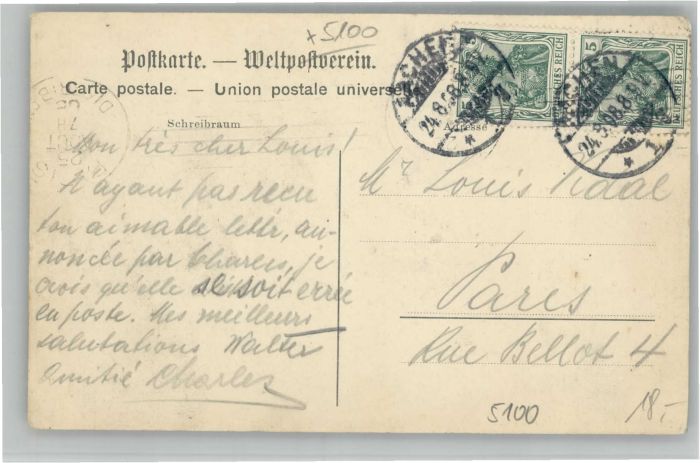 x 5100
Postkarte. — Weltpostverein.
Carte postale. — Union postale universelle.
Schreibraum
Adresse
Mon très cher Louis!
N'ayant pas recu
ton aimable lettre, an-
noncée par Charles, je
crois qu'elle se soit errée
en poste. Mes meilleurs
salutations Walter
Amitié Charles
Mr Louis
Paris
Rue Bellot 4
5100
18.-
5
DEUTSCHES REICH
5
DEUTSCHES REICH
AACHEN
24.8.08.8-9V.
* 1
AACHEN
24.8.08.8-9V.
* 1